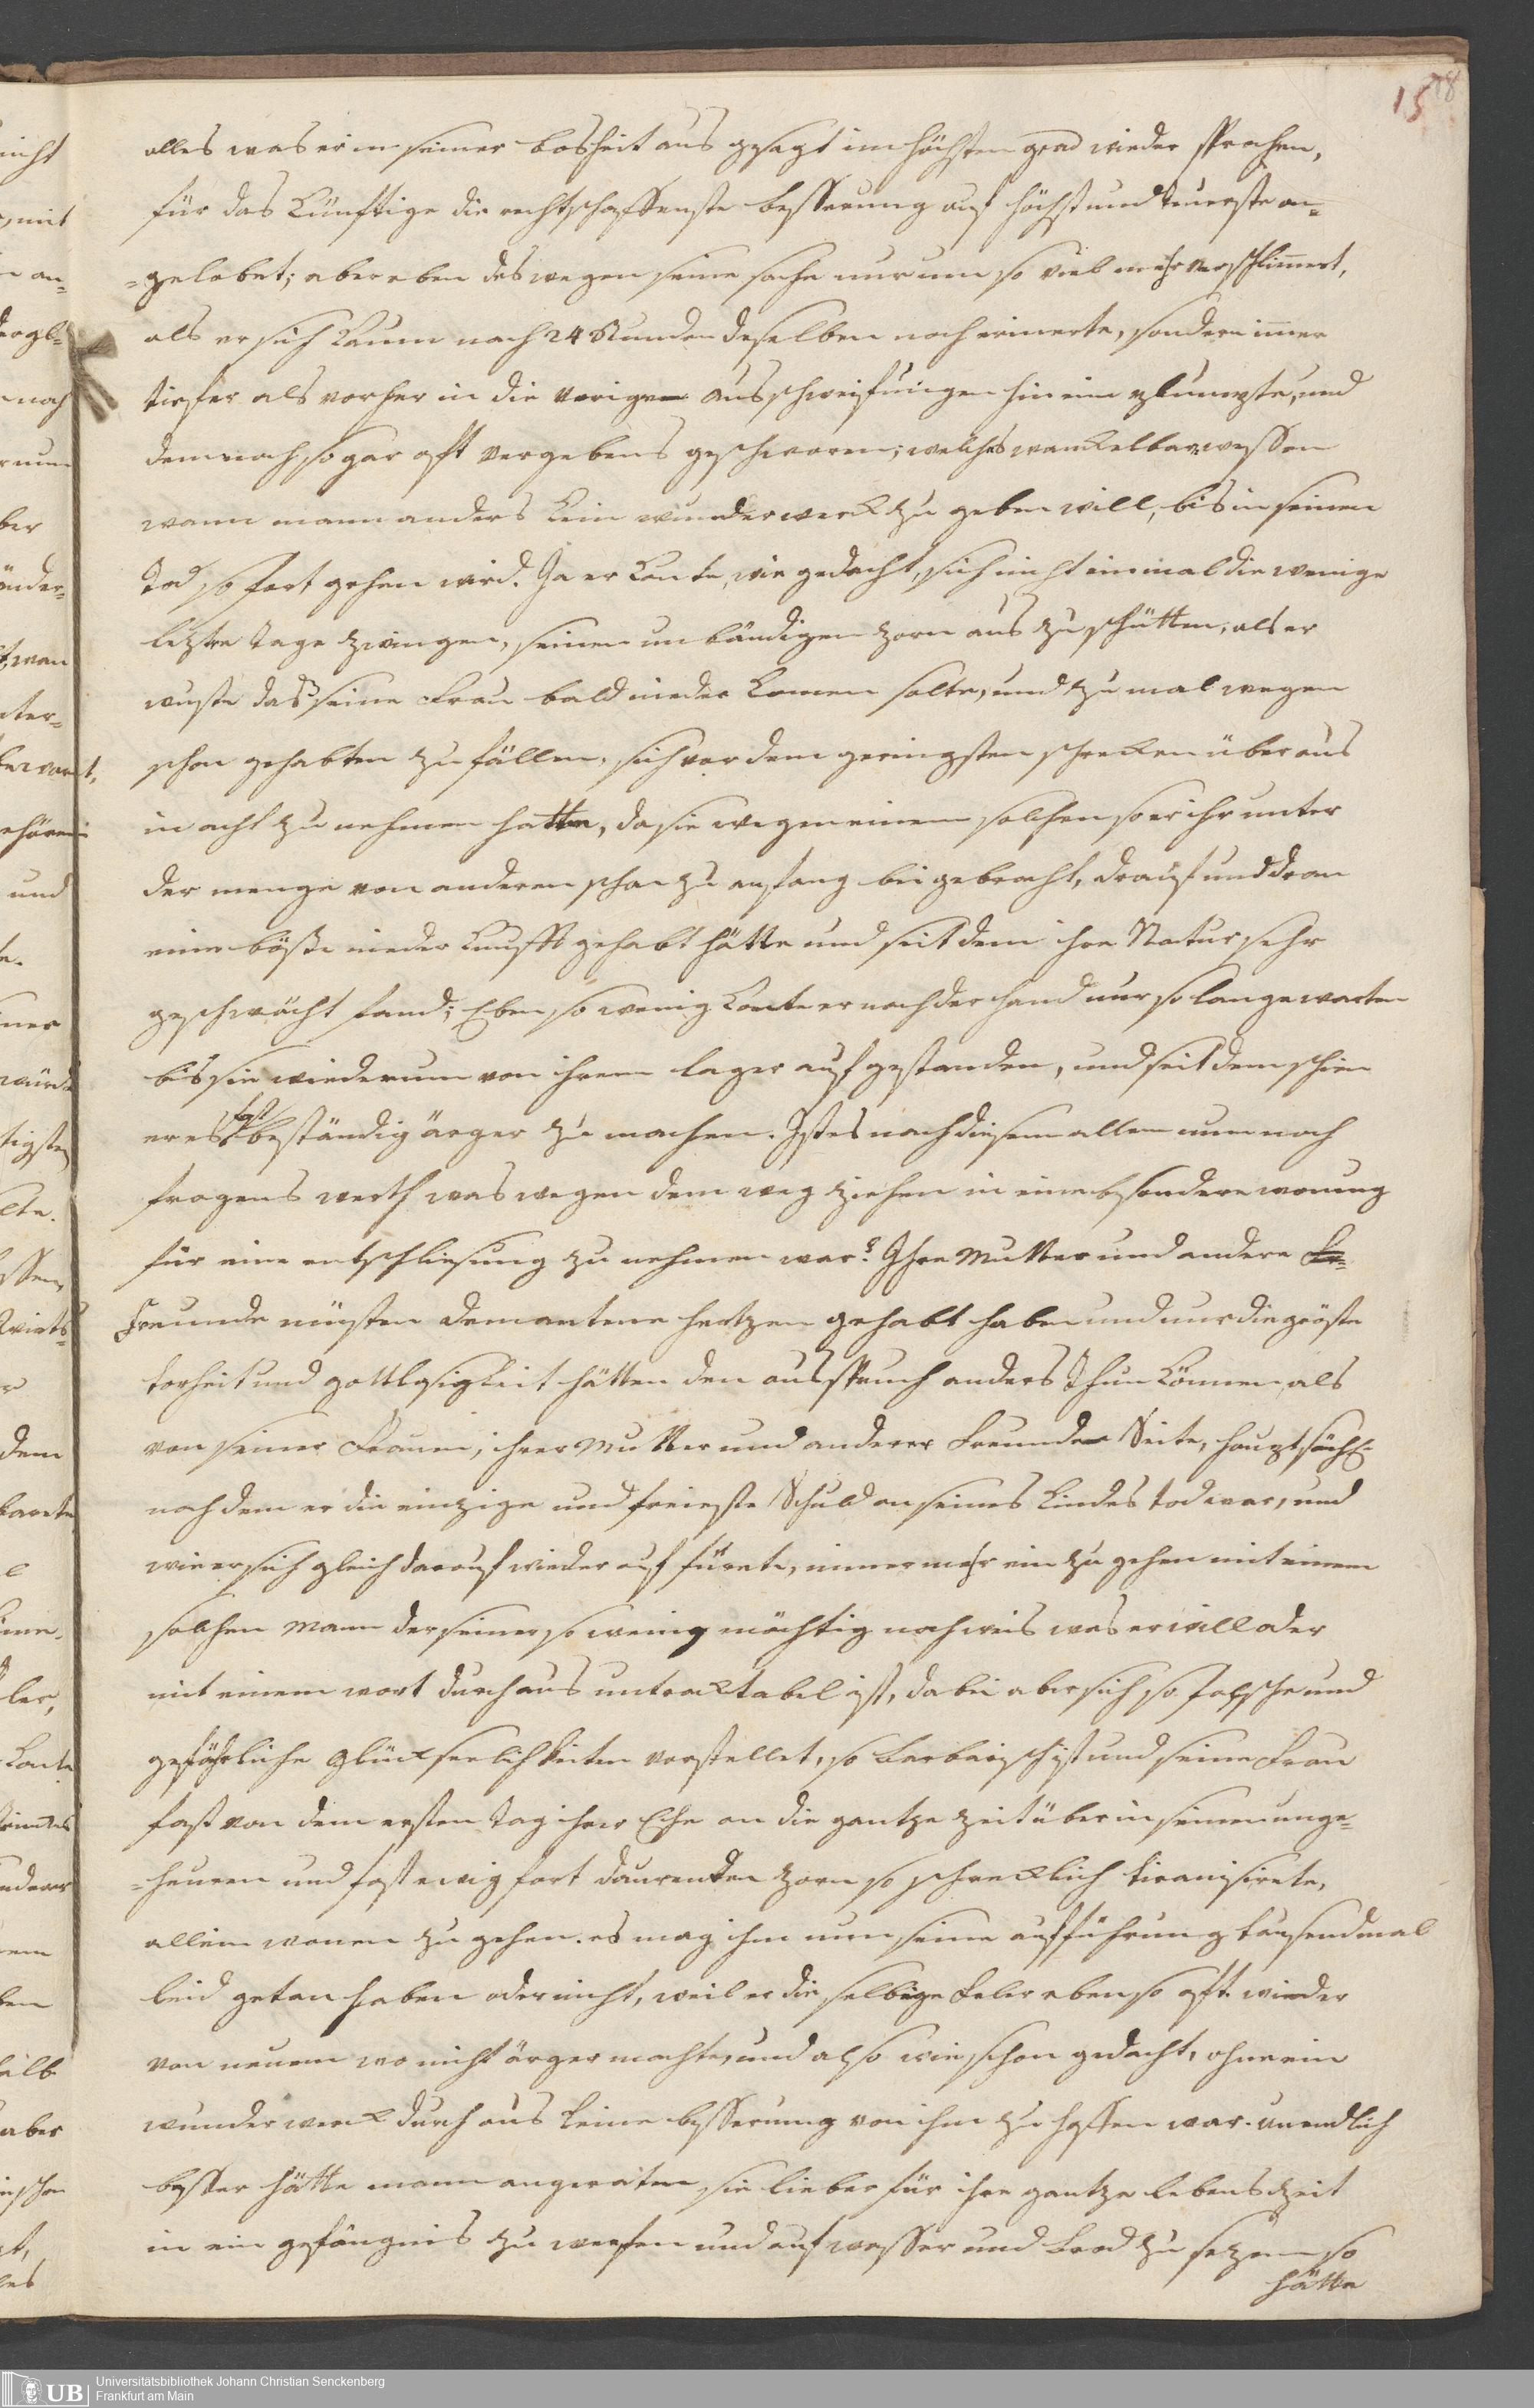 15 78
alles was er in seiner bosheit aus gesagt im höchsten grad wieder sprochen,
für das künftige die rechtschaffenste besserung auf höchst und teuerste an-
-gelobet; aber eben des wegen seine sache nur um so viel mehr verschlimert,
als er sich kaum nach 24 Stunden deselben noch erinerte, sondern imer
tiefer als vorher in die vorigen ausschweifungen hin ein plumpte, und
demnach so gar oft vergebens geschworen; welches wanckelbar wessen
wann mann anders kein wunderwerck zu geben will, bis in seinen
Tod so fort gehen wird. Ja er konte, wie gedacht, sich nicht ein mal die wenige
lezten tage zwingen, seinen unbändigen zorn aus zu schütten, als er
wuste das seine Frau bald nieder komen solte, und zu mal wegen
schon gehabten zu fällen, sich vor dem geringsten schrecken über aus
in acht zu nehmen hatte, da sie wegen einem solchen so er ihr unter
der menge von anderen schon zu anfang bei gebracht, drauf und dran
eine böße nieder kunfft gehabt hätte und seit dem ihre Natur sehr
geschwächt fand; Eben so wenig konte er nach der hand nur so lange warten
bis sie wiederum von ihrem lager auf gestanden, und seit dem schien
er es fast beständig ärger zu machen. Ist es nach diesem allem nun noch
fragens werth was wegen dem weg ziehen in eine besondere wonung
für eine entschliesung zu nehmen war? Ihre Mutter und andere Fr-
Freunde müsten demantene hertzen gehabt haben und nur die gröste
torheit und gottlosigkeit hätten den ausspruch anders Thun können, als
von seiner Frauen, ihrer Mutter und anderer Freunden Seite, hauptsächl.
nach dem er die einzige und freieste Schuld an seines Kindes tod war, und
wie er sich gleich darauf wieder auf fürete, nimermehr ein zu gehen mit einem
solchen Mann der seiner so wenig mächtig noch weis was er will oder
mit einem wort durchaus untracktabel ist, dabei aber sich so falsche und
gefährliche Glückseelichkeiten vorstellet, so barbarisch ist und seine Frau
fast von dem ersten tag ihrer Ehe an die gantze zeit über in seinem unge-
-heuren und fast ewig fort daurenden zorn so schrecklich tiranisirete,
allein wonen zu gehen. es mag ihm nun seine aufführung tausendmal
leid getan haben oder nicht, weil er die selbige feler eben so oft wieder
von neuem wo nicht ärger machte, und also wie schon gedacht, ohne ein
wunder werck durch aus keine besserung von ihm zu hoffen war. Unendlich
besser hätte mann angeraten, sie lieber für ihre gantze lebens zeit
in ein gefängnis zu werfen und auf wasser und brod zu setzen so
hätte
Universitätsbibliothek Johann Christian Senckenberg
Frankfurt am Main
UB